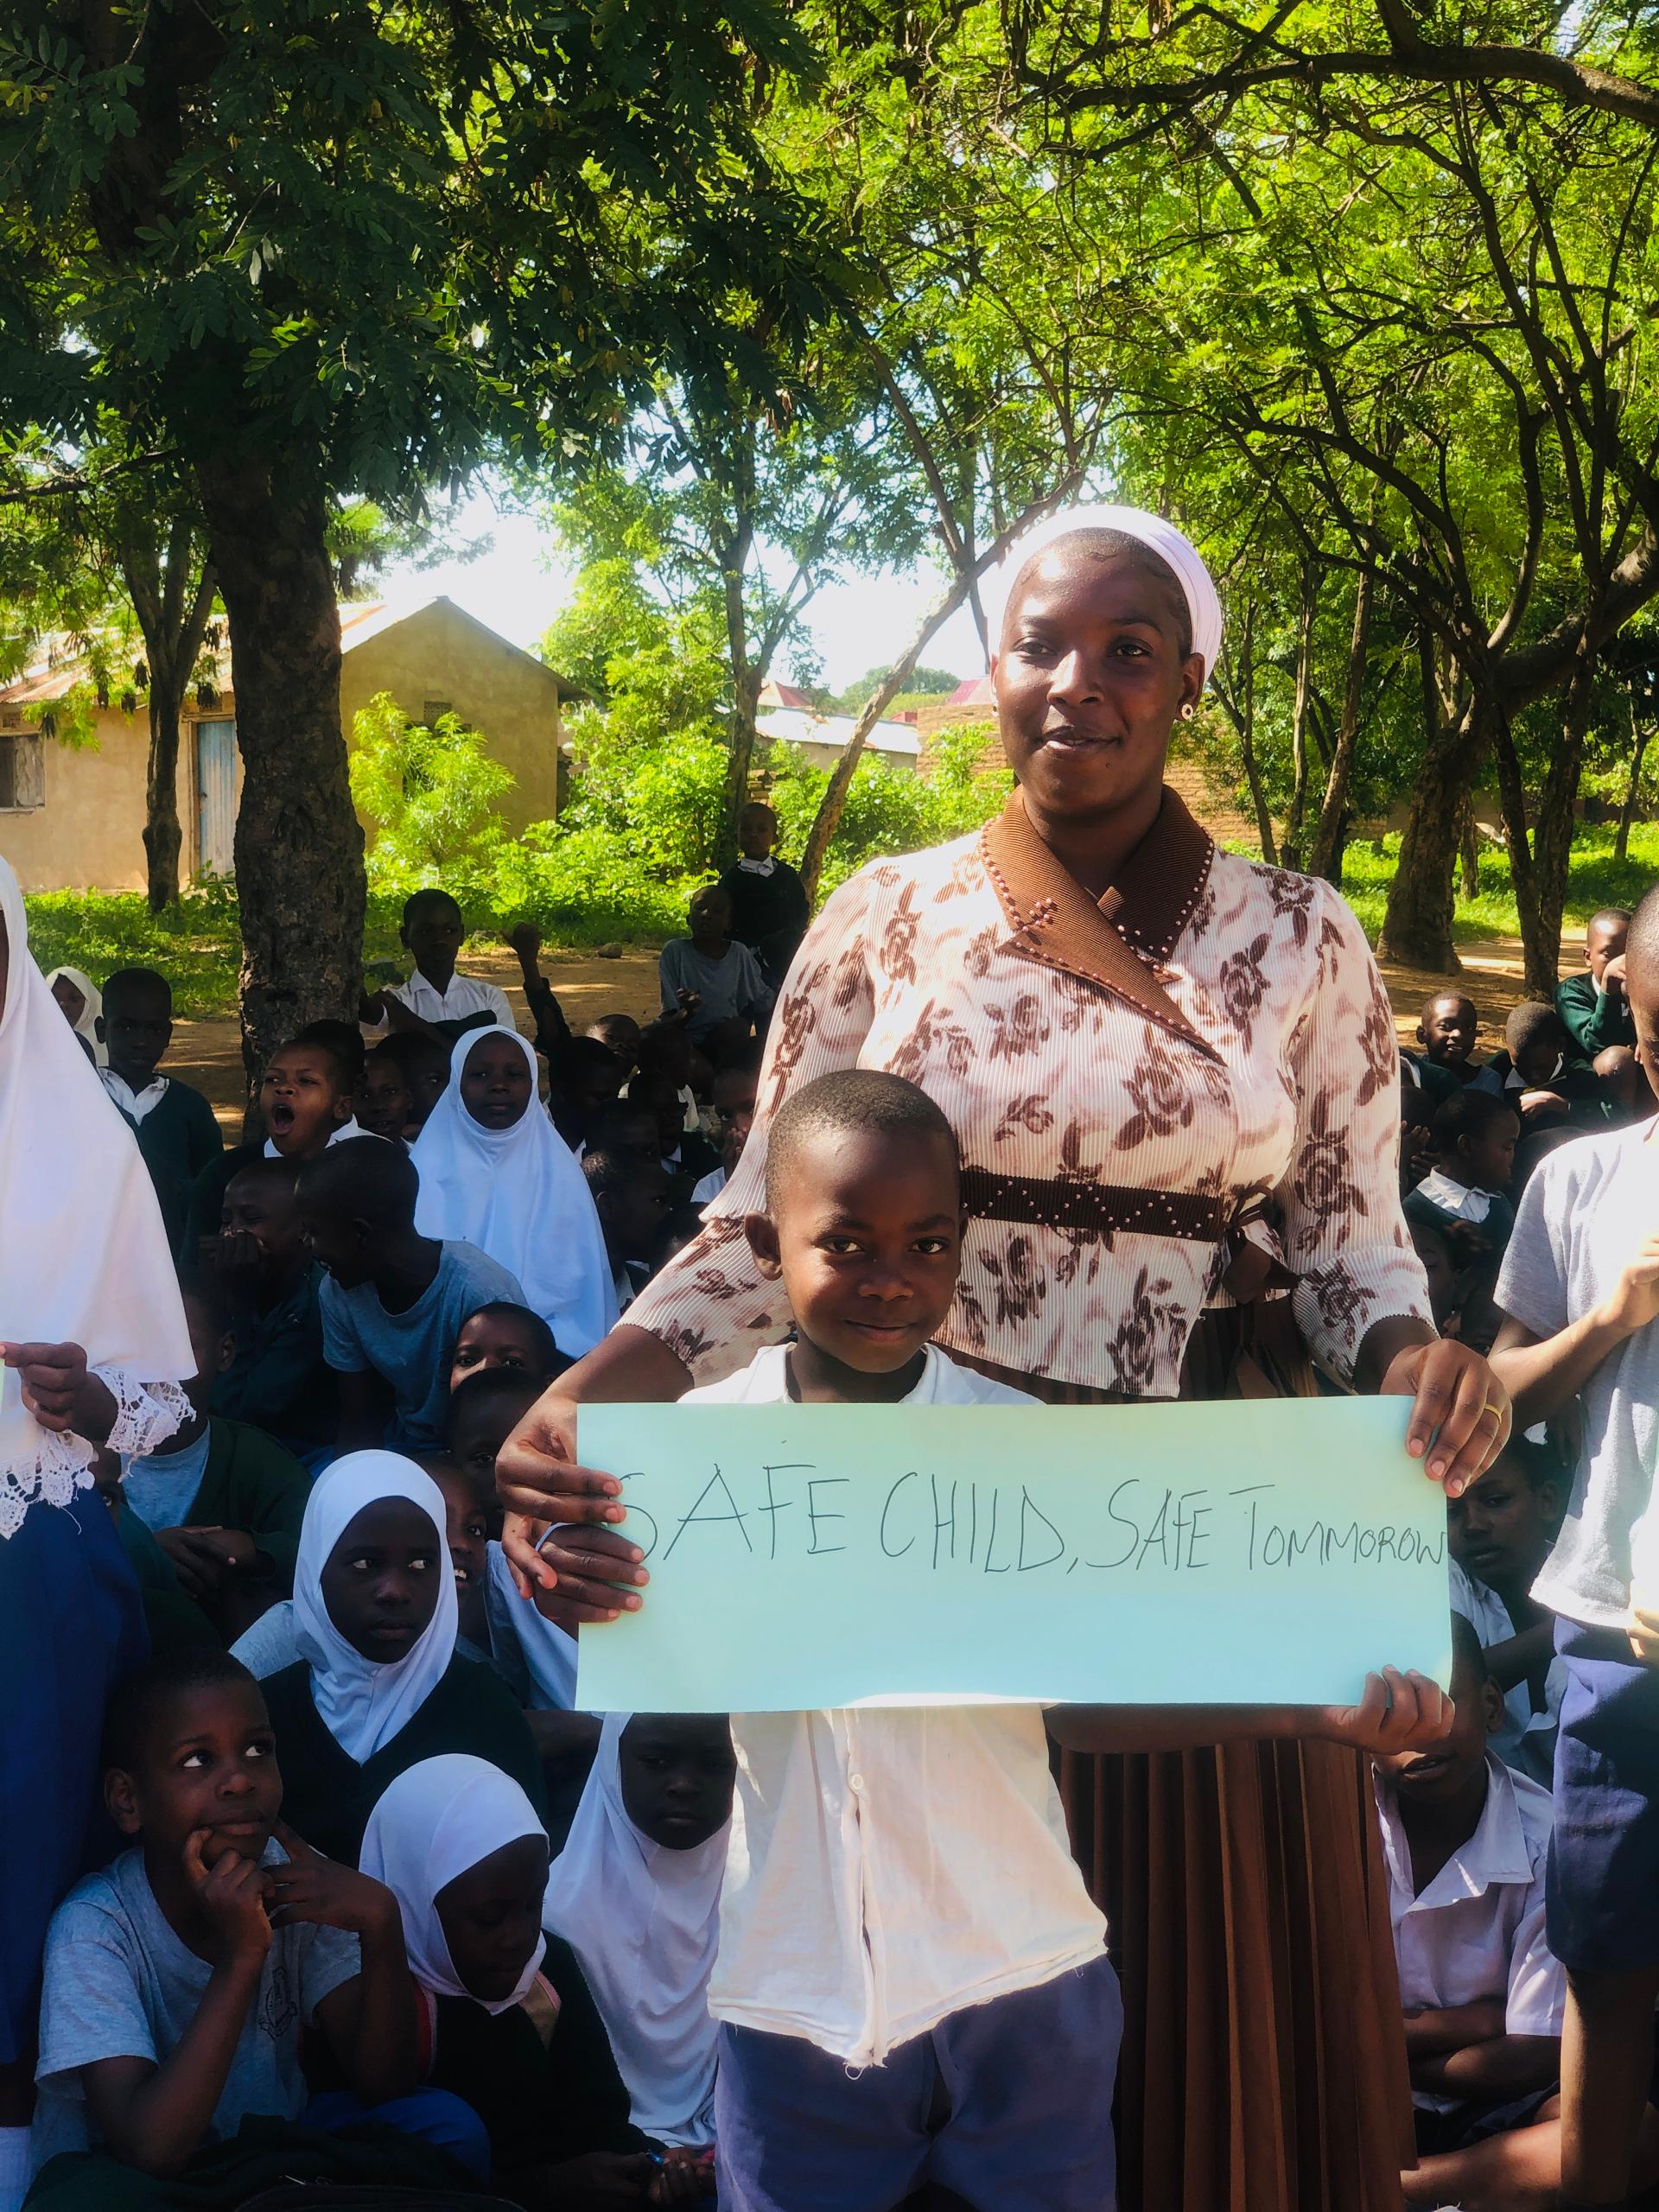 SAFE CHILD, SAFE TOMMOROW